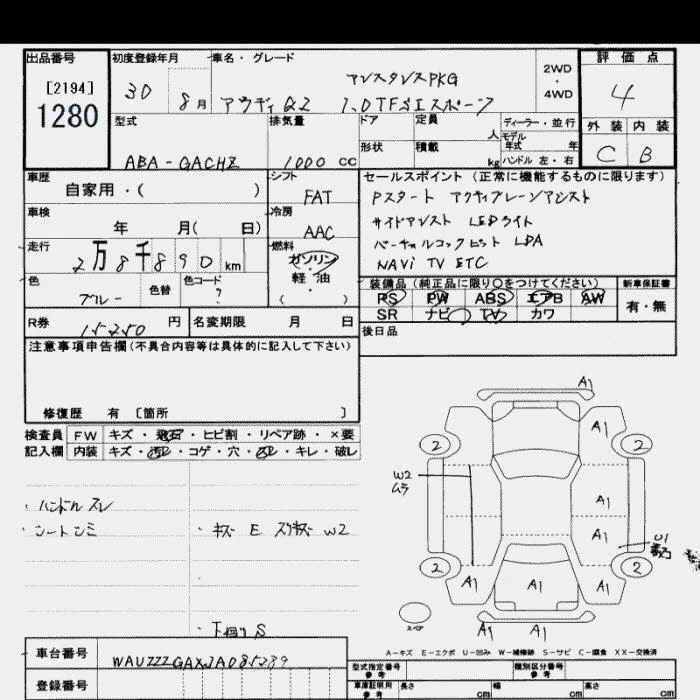 出品番号 初度登録年月 車名・グレード 評価点
[2194]
1280
30 8月 アウディQ2 1.0TFSIスポーツ
2WD
・
4WD
4
外装 内装
C B
型式 排気量 ドア 定員 ディーラー・並行
ABA-GACHZ 1000 cc 形状 積載 人 モデル年式 年
kg ハンドル 左・右
車歴 シフト セールスポイント(正常に機能するものに限ります)
自家用・( ) FAT
Pスタート アクティブレーンアシスト
車検 冷房 サイドアシスト LEDライト
年 月( 日) AAC
バーチャルコックピット LDA
走行 燃料 NAVi TV ETC
2万8千890km ガソリン
軽・油
( )
色 色替 色コード
ブルー ?
装備品(純正品に限り○をつけてください) 新車保証書
PS PW ABS エアB AW 有・無
SR ナビ TV カワ
R券 15250円 名変期限 月 日 後日品
注意事項申告欄(不具合内容等は具体的に記入して下さい)
修復歴 有 〔箇所 〕
検査員 FW キズ・飛石・ヒビ割・リペア跡・×要
記入欄 内装 キズ・汚レ・コゲ・穴・・キレ・破レ
・ハンドルスレ
・シートシミ
・キズ E スリキズ W2
・下回りS
A1
A1
2 2
W2
ムラ
A1
A1 U1
2 2
A1 A1 A1
スペア
A1 A1
A-キズ E-エクボ U-凹み W-補修跡 S-サビ C-腐食 XX-交換済
車台番号 WAUZZZGAXJA085289
型式指定番号 類別区分番号
参考 参考
登録番号 車庫証明用 長さ 幅 高さ
参考 cm cm cm